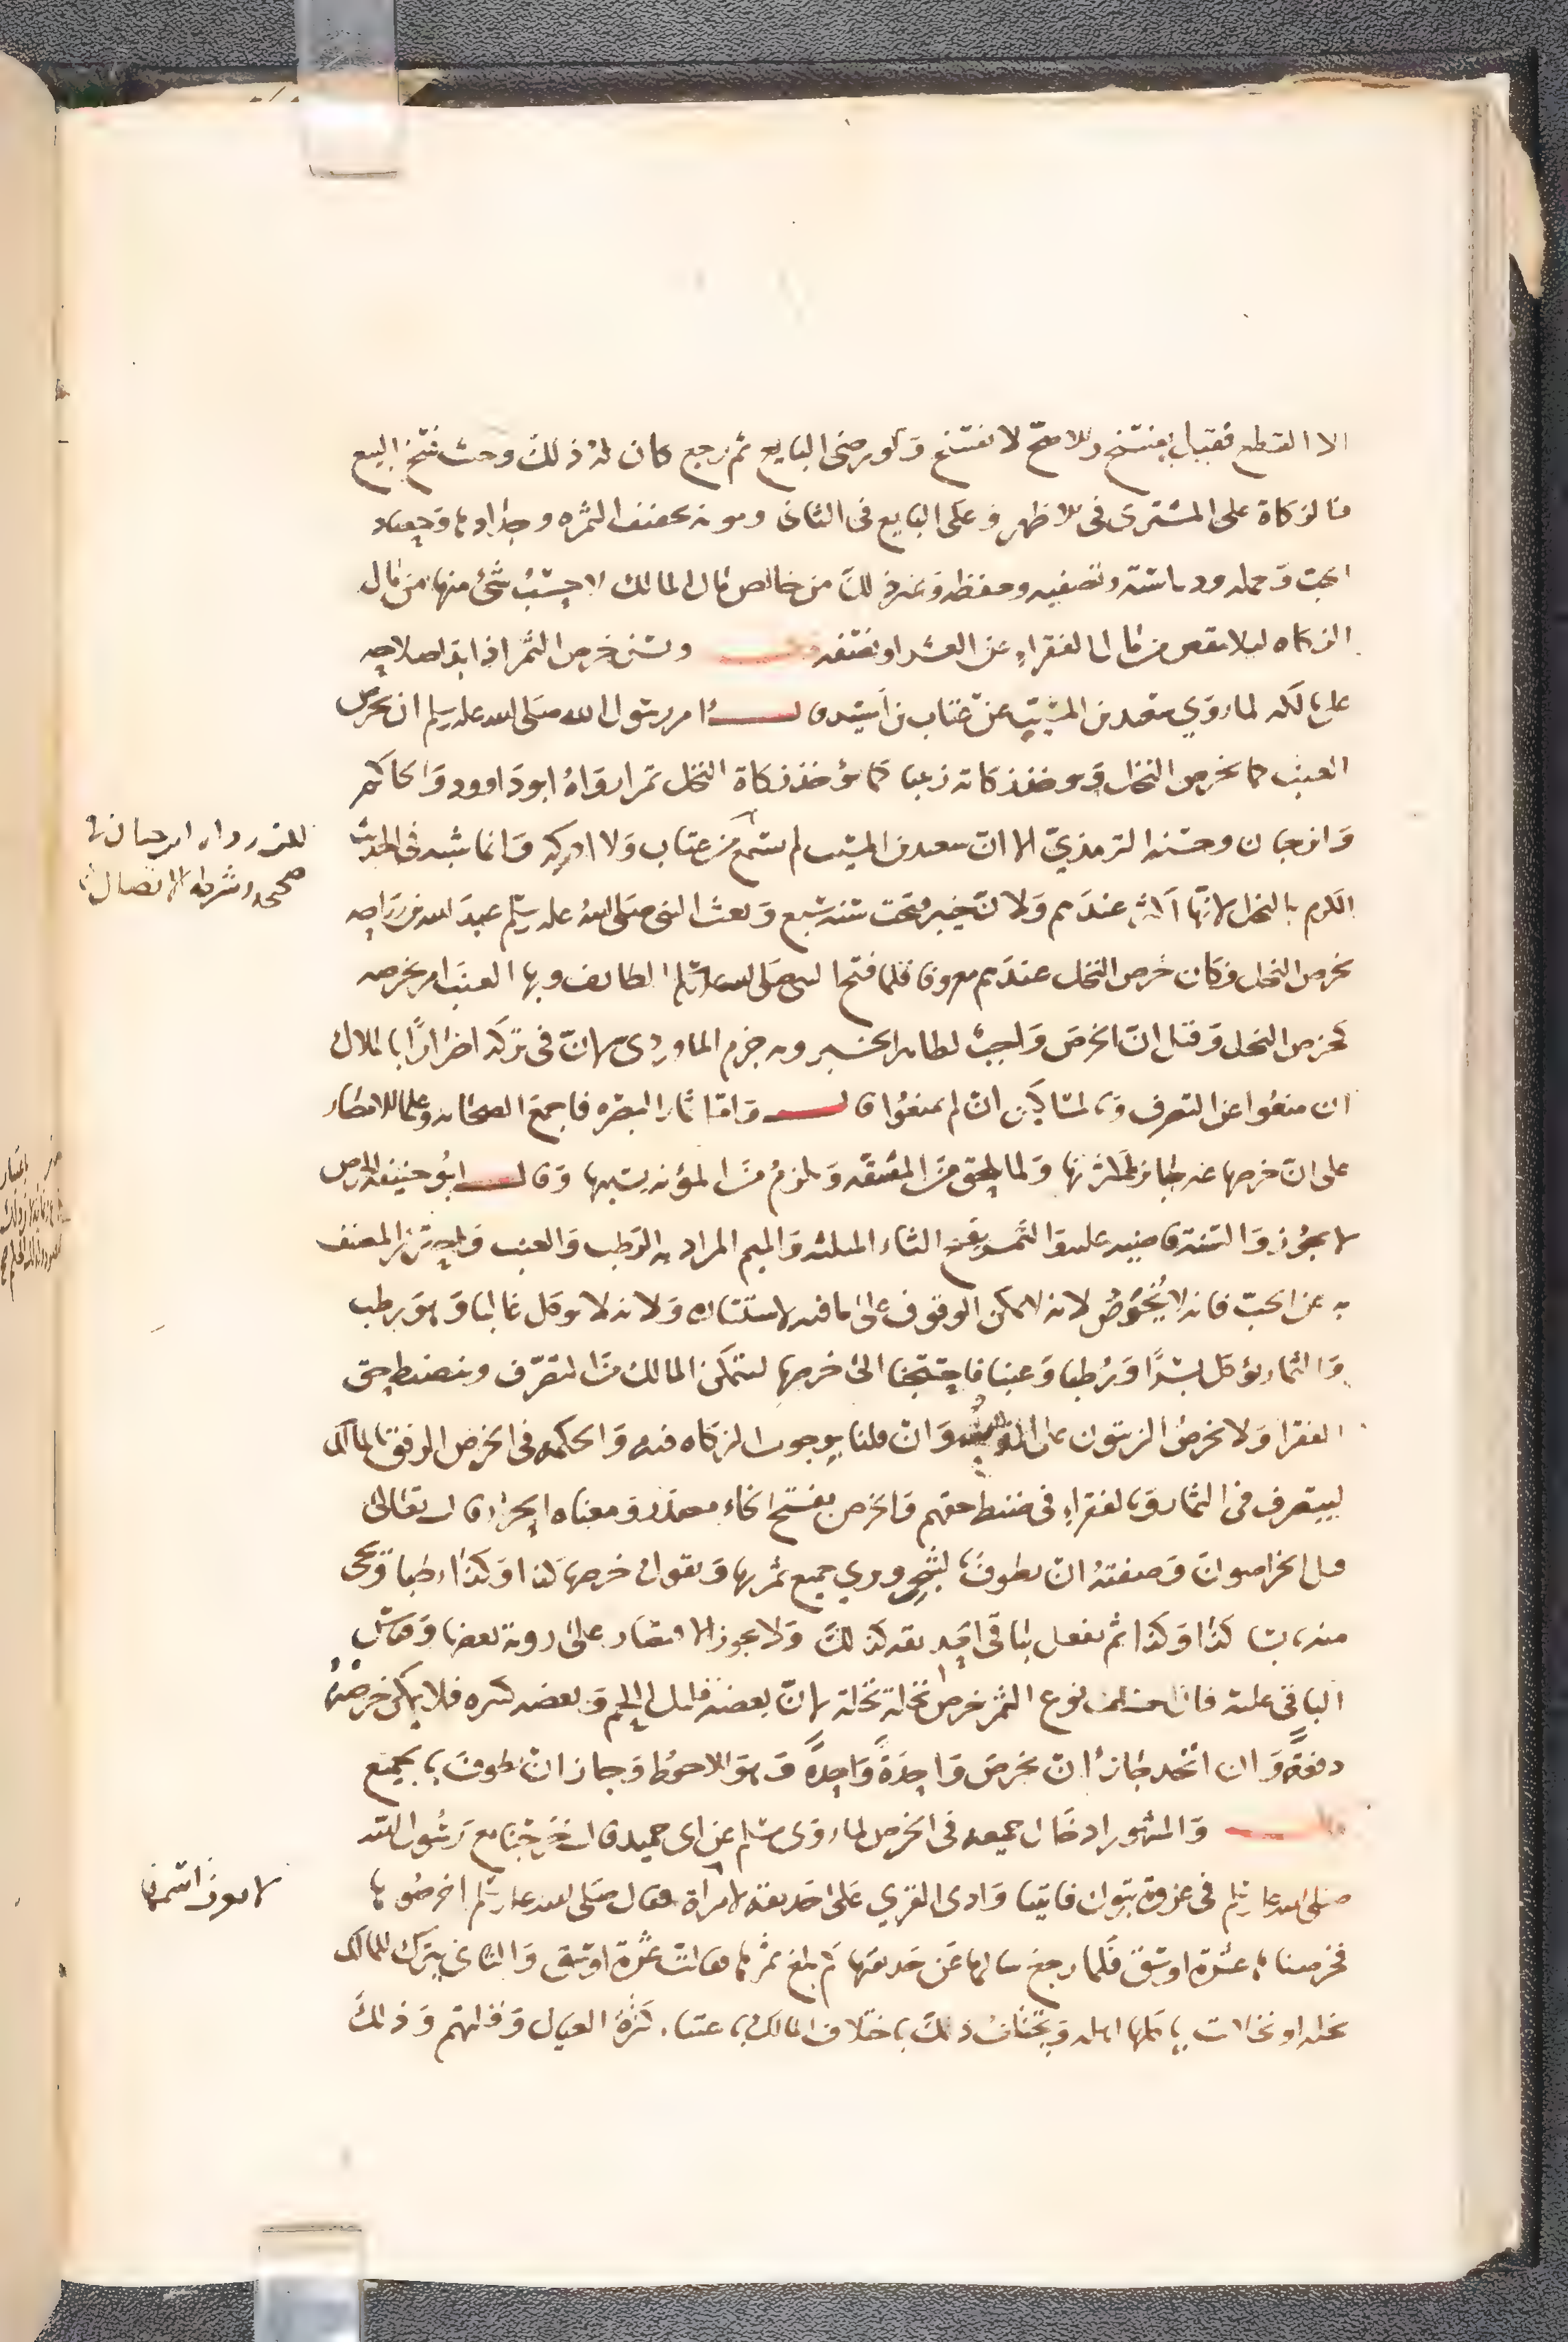 الا القطع فقيل ينفسخ والاصح لا يفسخ ولو رضى البايع ثم رجع كان له ذلك وحيث فسخ البيع
فالزكاة على المشترى فى الاظهر وعلى البايع فى الثانى ومونة تجفيف الثمره وجذاذها وحصاد
الحب وحمله ودياسته وتصفيه وحفظه وغير ذلك من خالص مال المالك لا يحسب شئ منها من مال
الزكاه ليلا ينقص من مال الفقراء عن العشر او نصفه ويسن خرص الثمر اذا بدا صلاحه
على مالكه لما روي سعيد بن المسيب عن عتاب بن اسيد قال امر رسول الله صلى الله عليه وسلم ان يخرص
العنب كما يخرص النخل ويوخذ زكاته زبيبا كما يؤخذ زكاة النخل تمرا رواه ابو داوود والحاكم
وابن حبان وحسنه الترمذي الا ان سعيد بن المسيب لم يسمع من عتاب ولا ادركه وانما شبه فى الحديث
الكرم بالنخل لانها اكثر عندهم ولان خيبر فتحت سنة سبع وبعث النبى صلى الله عليه وسلم عبد الله بن رواحه
يخرص النخل وكان خرص النخل عندهم معروفا فلما فتح النبى صلى الله عليه وسلم الطايف وبها العنب امر بخرصه
كخرص النخل وقيل ان الخرص واجب لظاهر الخبر وبه جزم الماوردى لان فى تركه اضرارا بالملاك
ان منعوا من التصرف وبالمساكين ان لم يمنعوا قال واما ثمار البصره فاجمع الصحابه وعلما الامصار
على ان خرصها غير جايز لكثرتها ولما يلحق من المشقه ويلزم من المؤنه بسببها وقال ابو حنيفه الخرص
لا يجوز والسنة قاضيه عليه والثمر بفتح الثاء المثلثه والميم المراد به الرطب والعنب واحترز المصنف
به عن الحب فانه لا يُخرص لانه لا يمكن الوقوف على ما فيه لاستتاره ولانه لا يوكل غالبا وهو رطب
والثمار يؤكل بسرا ورطبا وعنبا فاحتجنا الى خرصها ليتمكن المالك من التصرف وينضبط حق
الفقرا ولا يخرص الزيتون على وان قلنا بوجوب الزكاه فيه والحكمه فى الخرص الرفق بالمالك
ليتصرف فى الثمار وبالفقراء فى ضبط حقهم والخرص بفتح الخاء مصدر ومعناه الحزر قال تعالى
قتل الخراصون وصفته ان يطوف بالشجر ويري جميع ثمرها ويقول خرصها كذا وكذا رطبا ويجى
منه يابسا كذا وكذا ثم يفعل بباقى الحديقه كذلك ولا يجوز الاقتصار على روية بعضها وقياس
الباقى عليه فان اختلف نوع الثمر خرص نخلة نخلة لان بعضه قليل اللحم وبعضه كثيره فلا يمكن خرصها
دفعةً وان اتحد جاز ان يخرص واحدةً واحدةً وهو الاحوط وجاز ان يطوف بالجميع
قال والمشهور ادخال جميعه فى الخرص لما روى مسلم عن ابى حميد قال خرجنا مع رسول الله
صلى الله عليه وسلم فى غزوة تبوك فاتينا وادى القري على حديقه لامراة فقال صلى الله عليه وسلم اخرصوها
فخرصناها عشرة اوسق فلما رجع سالها عن حديقتها كم بلغ ثمرها فقالت عشرة اوسق والثانى يترك للمالك
نخله او نخلات ياكلها اهله ويختلف ذلك باختلاف المالك باعتبار كثرة العيال وقلتهم وذلك
لكن رواه ابن حبان فى
صحيحه وشرطه الاتصال